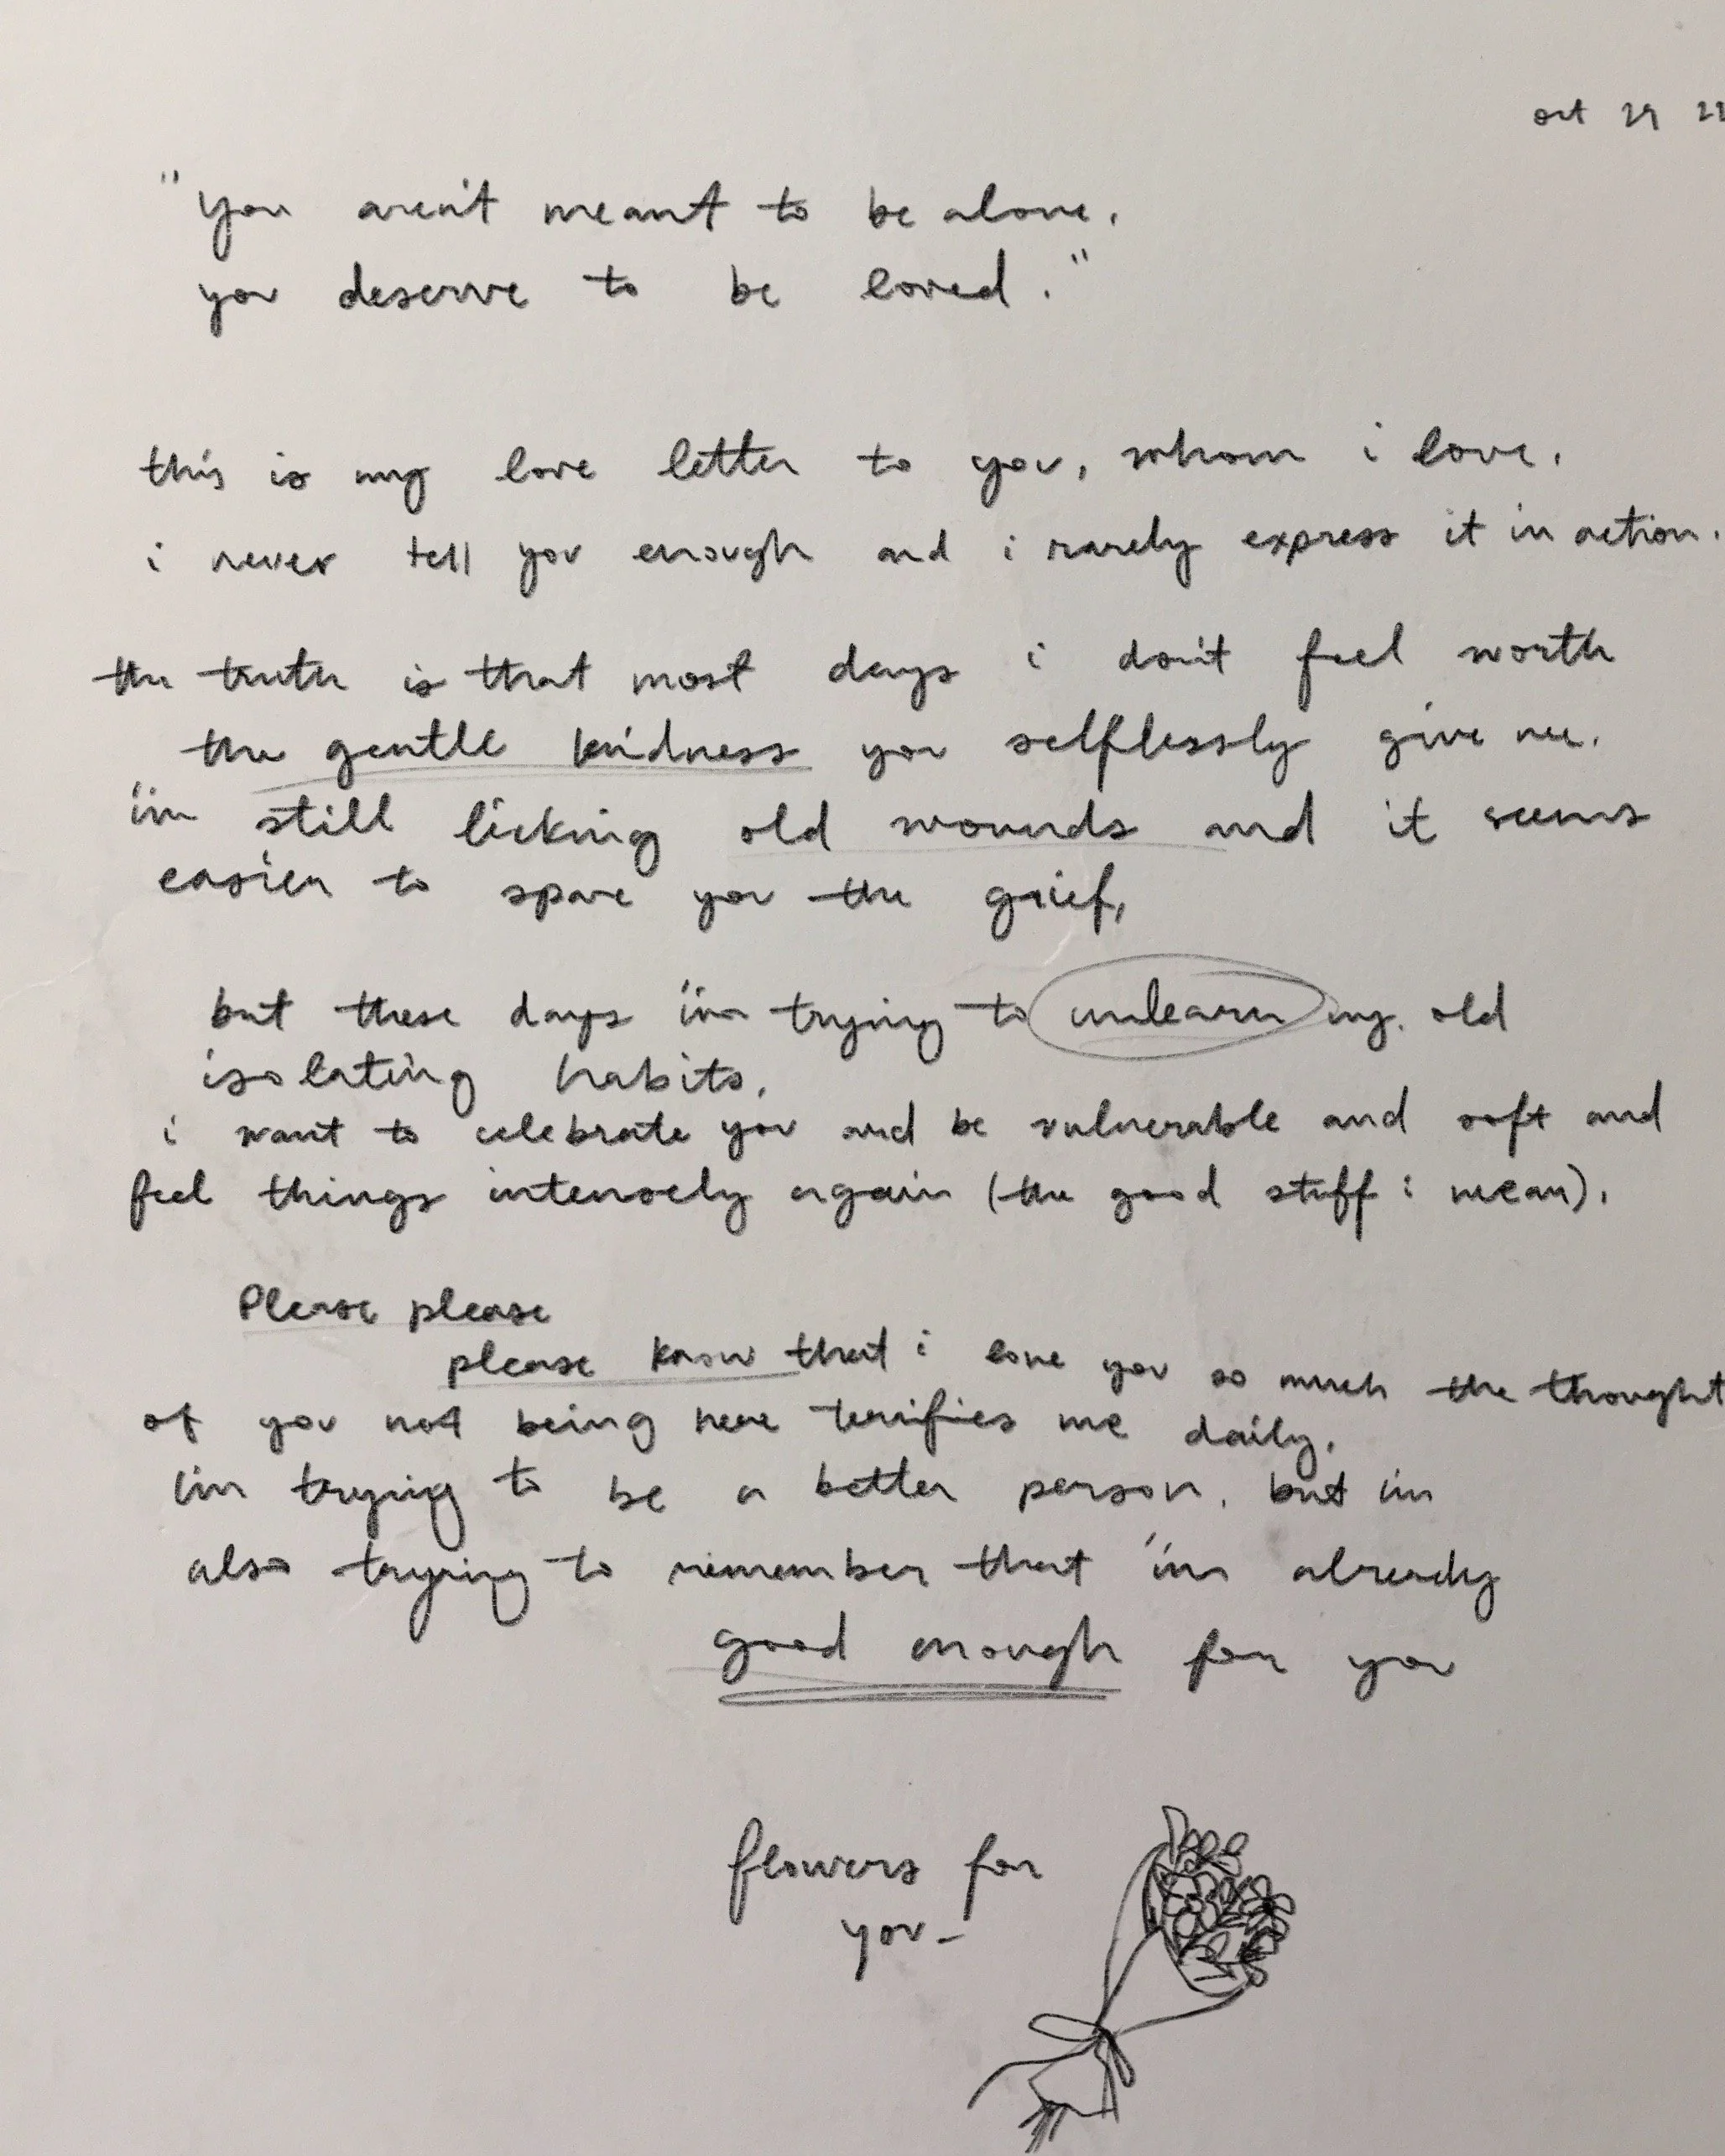 oct 29 22
"you aren't meant to be alone,
you deserve to be loved."
this is my love letter to you, whom i love.
i never tell you enough and i rarely express it in action.
the truth is that most days i don't feel worth
the gentle kindness you selflessly give me.
i'm still licking old wounds and it seems
easier to spare you the grief,
but these days i'm trying to unlearn my old
isolating habits.
i want to celebrate you and be vulnerable and soft and
feel things intensely again (the good stuff i mean).
Please please
please know that i love you so much the thought
of you not being here terrifies me daily.
i'm trying to be a better person, but i'm
also trying to remember that i'm already
good enough for you
flowers for
you-